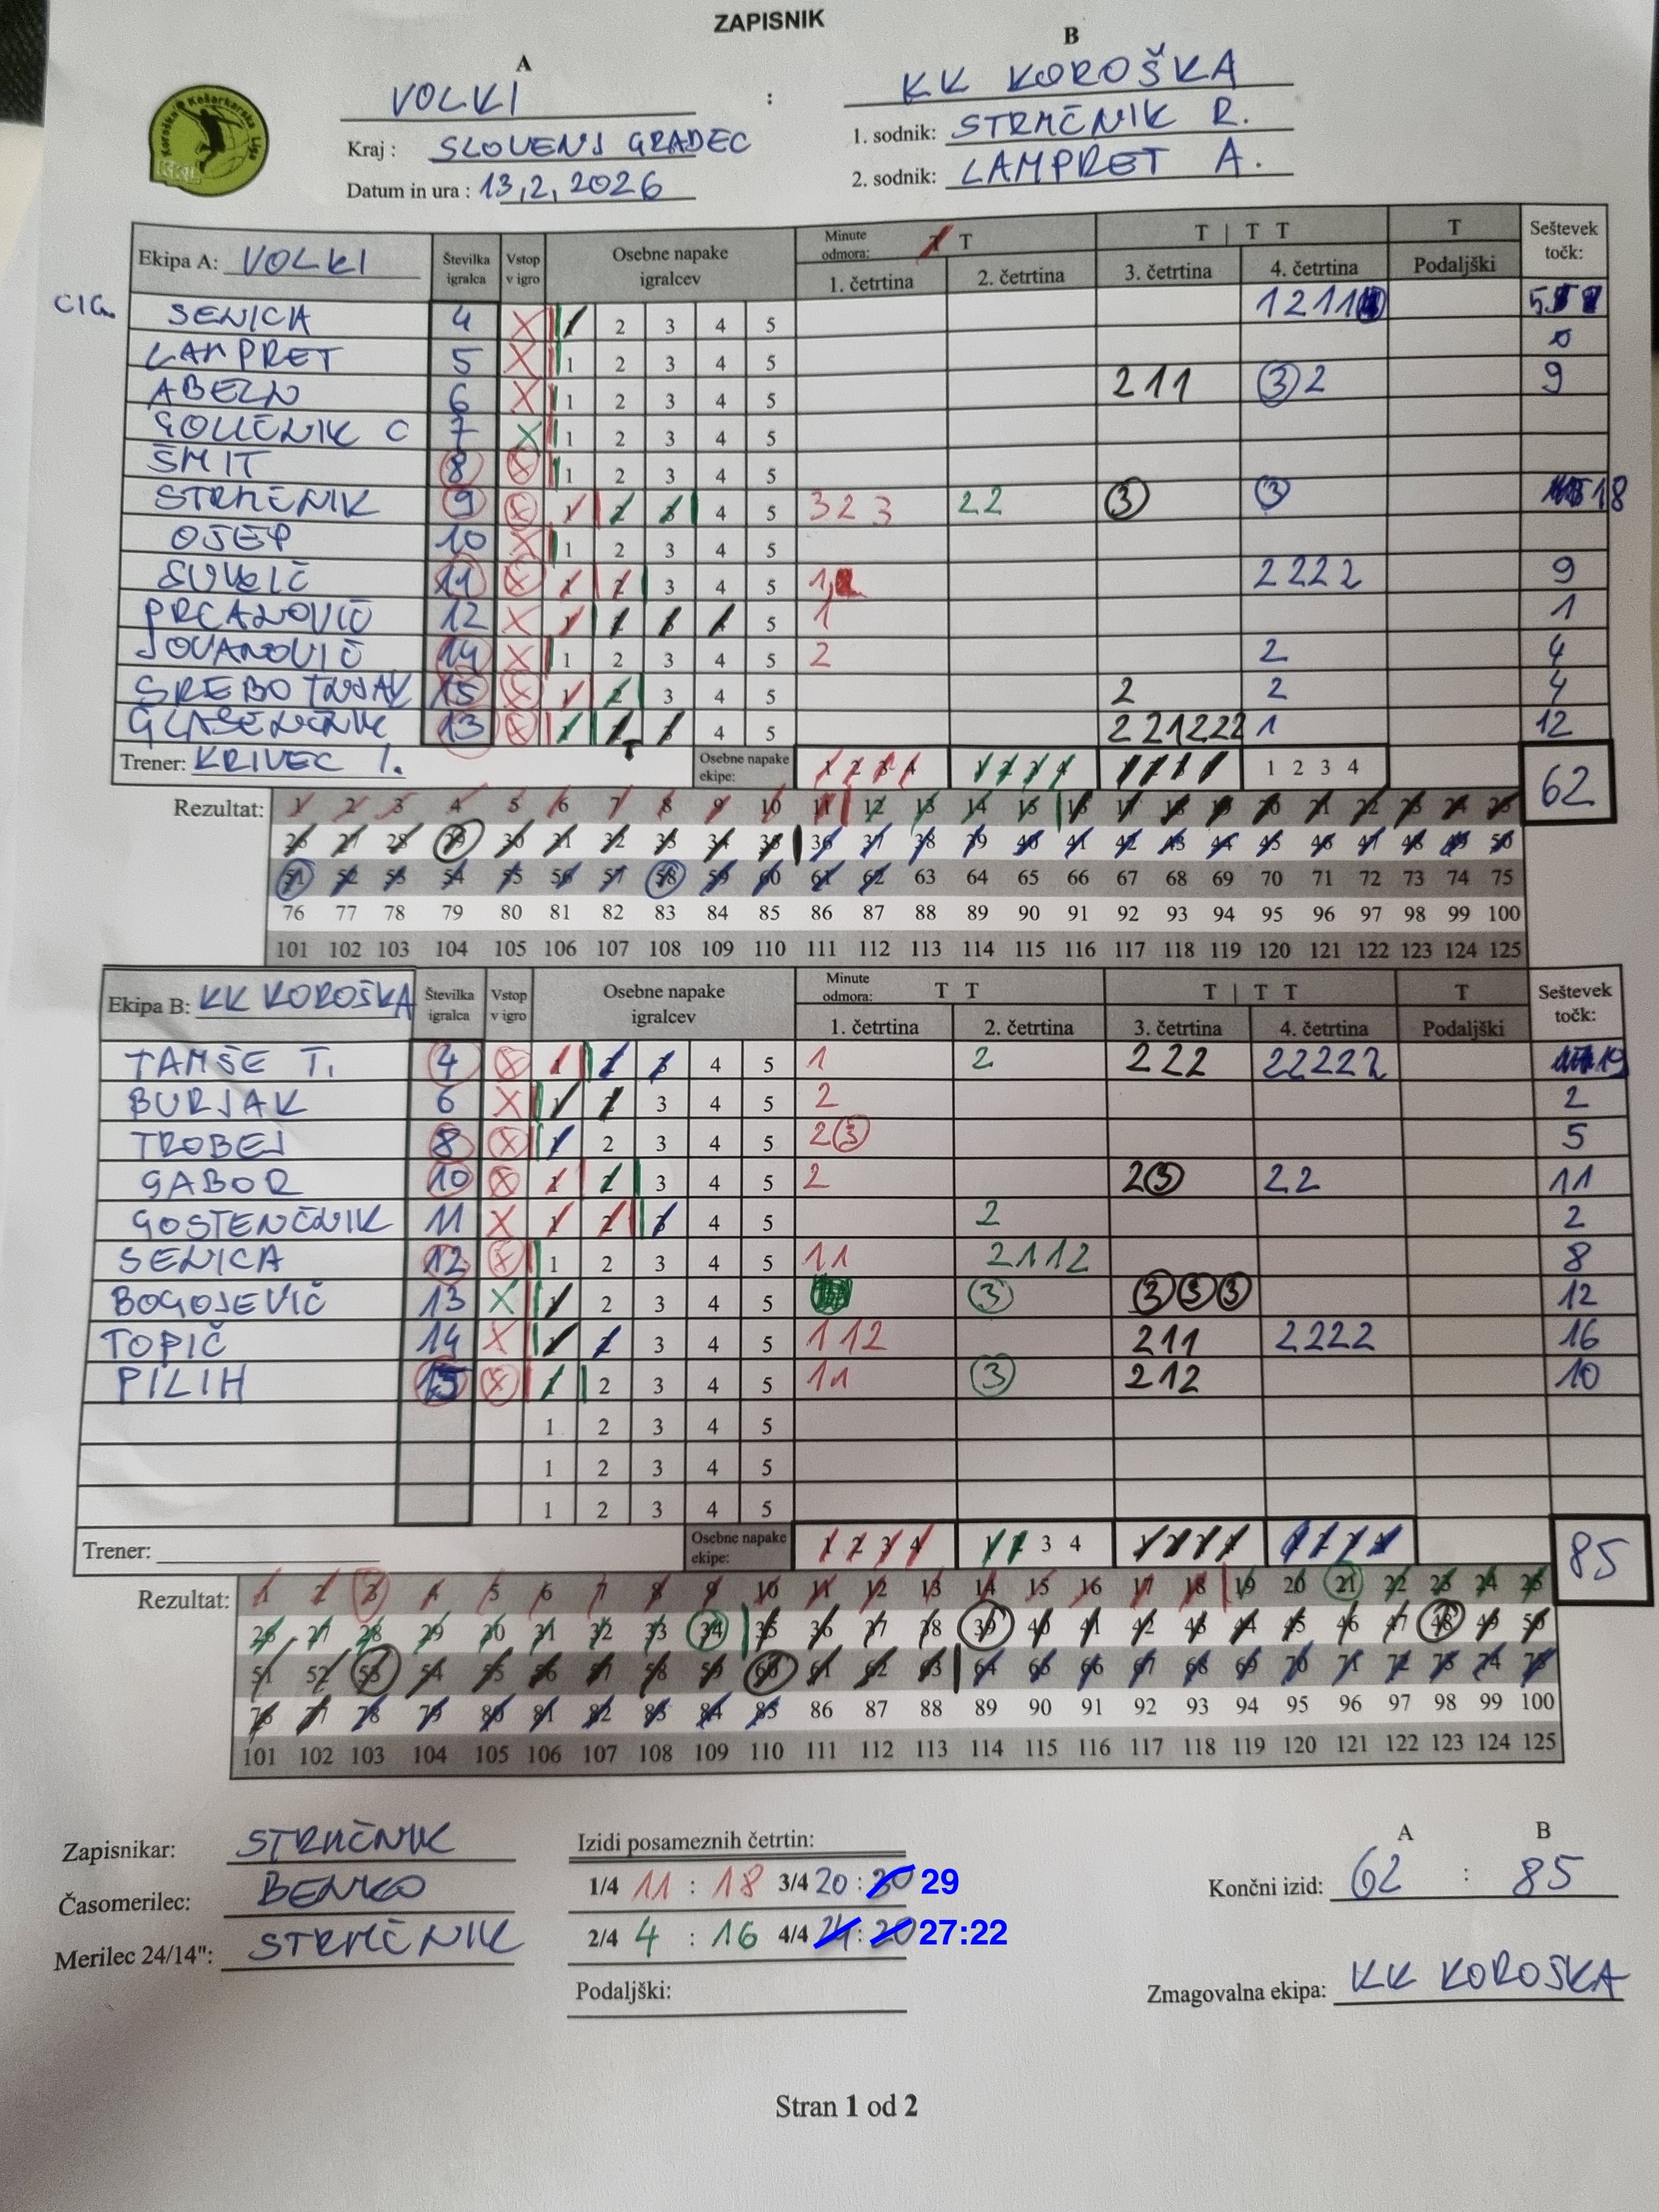 ZAPISNIK
A B
VOLKI : KK KOROŠKA
Kraj : SLOVENJ GRADEC 1. sodnik: STRMČNIK R.
Datum in ura : 13,2,2026 2. sodnik: LAMPRET A.
Koroška Košarkarska Liga
Ekipa A: VOLKI Številka igralca Vstop v igro Osebne napake igralcev Minute odmora: T T T | T T T Seštevek točk:
1. četrtina 2. četrtina 3. četrtina 4. četrtina Podaljški
SENICA 4 X 1 2 3 4 5 1211 5
LAMPRET 5 X 1 2 3 4 5 0
6 X 1 2 3 4 5 211 3 2 9
C 7 X 1 2 3 4 5
ŠMIT 8 X 1 2 3 4 5
STRMČNIK 9 X 1 2 3 4 5 3 2 3 2 2 3 3 18
OJEP 10 X 1 2 3 4 5
11 X 1 2 3 4 5 1 2 2 2 2 9
PRCANOVIČ 12 X 1 2 3 4 5 1 1
JOVANOVIČ 14 X 1 2 3 4 5 2 2 4
SREBOTNJAK 15 X 1 2 3 4 5 2 2 4
13 X 1 2 3 4 5 2 2 1 2 2 2 1 12
Trener: KRIVEC I. Osebne napake ekipe: 1 2 3 4 1 2 3 4 1 2 3 4 1 2 3 4 62
Rezultat: 1 2 3 4 5 6 7 8 9 10 11 12 13 14 15 16 17 18 19 20 21 22 23 24 25
26 27 28 29 30 31 32 33 34 35 36 37 38 39 40 41 42 43 44 45 46 47 48 49 50
51 52 53 54 55 56 57 58 59 60 61 62 63 64 65 66 67 68 69 70 71 72 73 74 75
76 77 78 79 80 81 82 83 84 85 86 87 88 89 90 91 92 93 94 95 96 97 98 99 100
101 102 103 104 105 106 107 108 109 110 111 112 113 114 115 116 117 118 119 120 121 122 123 124 125
Ekipa B: KK KOROŠKA Številka igralca Vstop v igro Osebne napake igralcev Minute odmora: T T T | T T T Seštevek točk:
1. četrtina 2. četrtina 3. četrtina 4. četrtina Podaljški
TAMŠE T. 4 X 1 2 3 4 5 1 2 2 2 2 2 2 2 2 2 19
BURJAK 6 X 1 2 3 4 5 2 2
TROBEJ 8 X 1 2 3 4 5 2 3 5
GABOR 10 X 1 2 3 4 5 2 2 3 2 2 11
GOSTENČNIK 11 X 1 2 3 4 5 2 2
SENICA 12 X 1 2 3 4 5 1 1 2 1 1 2 8
BOGOJEVIČ 13 X 1 2 3 4 5 3 3 3 3 12
TOPIČ 14 X 1 2 3 4 5 1 1 2 2 1 1 2 2 2 2 16
PILIH 15 X 1 2 3 4 5 1 1 3 2 1 2 10
1 2 3 4 5
1 2 3 4 5
1 2 3 4 5
Trener: Osebne napake ekipe: 1 2 3 4 1 2 3 4 1 2 3 4 1 2 3 4 85
Rezultat: 1 2 3 4 5 6 7 8 9 10 11 12 13 14 15 16 17 18 19 20 21 22 23 24 25
26 27 28 29 30 31 32 33 34 35 36 37 38 39 40 41 42 43 44 45 46 47 48 49 50
51 52 53 54 55 56 57 58 59 60 61 62 63 64 65 66 67 68 69 70 71 72 73 74 75
76 77 78 79 80 81 82 83 84 85 86 87 88 89 90 91 92 93 94 95 96 97 98 99 100
101 102 103 104 105 106 107 108 109 110 111 112 113 114 115 116 117 118 119 120 121 122 123 124 125
Zapisnikar: STRMČNIK Izidi posameznih četrtin: A B
Časomerilec: BENKO 1/4 11 : 18 3/4 20 : 30 29 Končni izid: 62 : 85
Merilec 24/14": STRMČNIK 2/4 4 : 16 4/4 24 : 20 27:22
Podaljški: Zmagovalna ekipa: KK KOROŠKA
Stran 1 od 2